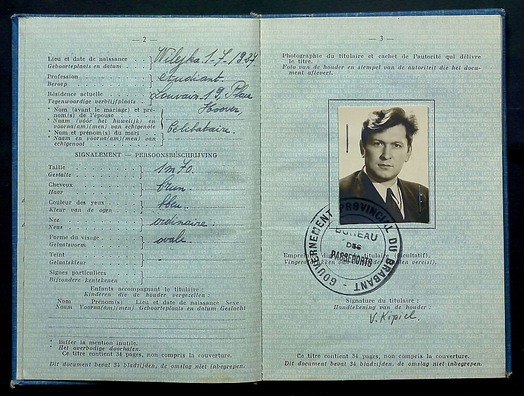 — 2 —
Lieu et date de naissance
Geboorteplaats en datum
Wilejka 1-7-1924
Profession
Beroep
étudiant
Résidence actuelle
Tegenwoordige verblijfplaats
Louvain 19, Place
Hoover
Nom (avant le mariage) et prénom(s) de l'épouse
Naam (voor het huwelijk) en voorna(a)m(en) van echtgenote
* Nom et prénom(s) du mari
* Naam en voorna(a)m(en) van echtgenoot
Célibataire.
SIGNALEMENT — PERSOONSBESCHRIJVING
Taille
Gestalte
1m70.
Cheveux
Haar
brun.
Couleur des yeux
Kleur van de ogen
bleu.
Nez
Neus
ordinaire.
Forme du visage
Gelaatsvorm
ovale.
Teint
Gelaatskleur
-
Signes particuliers
Bijzondere kentekenen
Enfants accompagnant le titulaire :
Kinderen die de houder vergezellen :
Nom Prénom(s) Lieu et date de naissance Sexe
Naam Voorna(a)m(en) Geboorteplaats en datum Geslacht
* Biffer la mention inutile.
* Het overbodige doorhalen.
Ce titre contient 34 pages, non compris la couverture.
Dit document bevat 34 bladzijden, de omslag niet inbegrepen.
— 3 —
Photographie du titulaire et cachet de l'autorité qui délivre
le titre.
Foto van de houder en stempel van de autoriteit die het document
aflevert.
GOUVERNEMENT PROVINCIAL DU BRABANT
BUREAU
DES
PASSEPORTS
Signature du titulaire :
Handtekening van de houder :
V. Kipiel
Ce titre contient 34 pages, non compris la couverture.
Dit document bevat 34 bladzijden, de omslag niet inbegrepen.